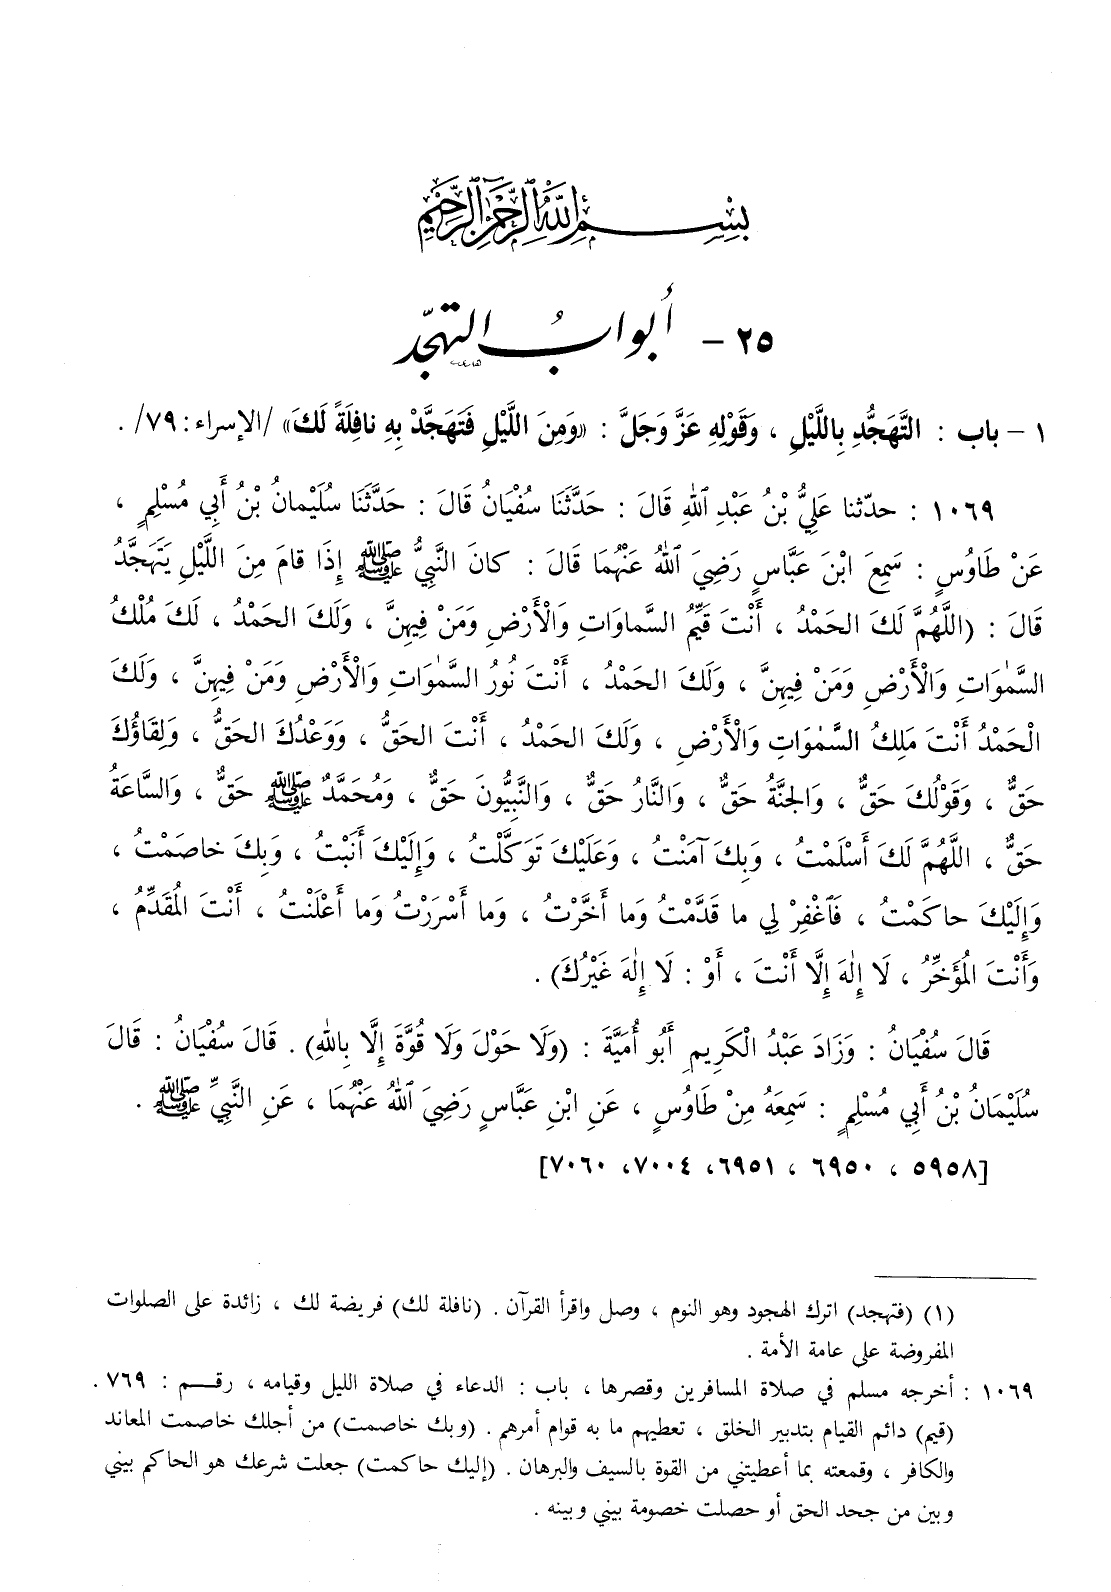 بِسْمِ اللَّهِ الرَّحْمَٰنِ الرَّحِيمِ
٢٥ - أبوابُ التهجّد
١ - باب : التَّهَجُّدِ بِاللَّيْلِ ، وَقَوْلِهِ عَزَّ وَجَلَّ : «وَمِنَ اللَّيْلِ فَتَهَجَّدْ بِهِ نافِلَةً لَكَ» /الإسراء : ٧٩/ .
١٠٦٩ : حدّثنا عَلِيُّ بْنُ عَبْدِ اللهِ قَالَ : حَدَّثَنَا سُفْيَانُ قَالَ : حَدَّثَنَا سُلَيْمانُ بْنُ أَبِي مُسْلِمٍ ،
عَنْ طَاوُسٍ : سَمِعَ ابْنَ عَبَّاسٍ رَضِيَ اللهُ عَنْهُمَا قَالَ : كانَ النَّبِيُّ ﷺ إِذَا قامَ مِنَ اللَّيْلِ يَتَهَجَّدُ
قَالَ : (اللَّهُمَّ لَكَ الحَمْدُ ، أَنْتَ قَيِّمُ السَّماوَاتِ وَالْأَرْضِ وَمَنْ فِيهِنَّ ، وَلَكَ الحَمْدُ ، لَكَ مُلْكُ
السَّمٰوَاتِ وَالْأَرْضِ وَمَنْ فِيهِنَّ ، وَلَكَ الحَمْدُ ، أَنْتَ نُورُ السَّمٰوَاتِ وَالْأَرْضِ وَمَنْ فِيهِنَّ ، وَلَكَ
الْحَمْدُ أَنْتَ مَلِكُ السَّمٰوَاتِ وَالْأَرْضِ ، وَلَكَ الحَمْدُ ، أَنْتَ الحَقُّ ، وَوَعْدُكَ الحَقُّ ، وَلِقَاؤُكَ
حَقٌّ ، وَقَوْلُكَ حَقٌّ ، وَالجَنَّةُ حَقٌّ ، وَالنَّارُ حَقٌّ ، وَالنَّبِيُّونَ حَقٌّ ، وَمُحَمَّدٌ ﷺ حَقٌّ ، وَالسَّاعَةُ
حَقٌّ ، اللَّهُمَّ لَكَ أَسْلَمْتُ ، وَبِكَ آمَنْتُ ، وَعَلَيْكَ تَوَكَّلْتُ ، وَإِلَيْكَ أَنَبْتُ ، وَبِكَ خاصَمْتُ ،
وَإِلَيْكَ حاكَمْتُ ، فَاغْفِرْ لِي ما قَدَّمْتُ وَما أَخَّرْتُ ، وَما أَسْرَرْتُ وَما أَعْلَنْتُ ، أَنْتَ المُقَدِّمُ ،
وَأَنْتَ المُؤَخِّرُ ، لَا إِلٰهَ إِلَّا أَنْتَ ، أَوْ : لَا إِلٰهَ غَيْرُكَ) .
قَالَ سُفْيَانُ : وَزَادَ عَبْدُ الْكَرِيمِ أَبُو أُمَيَّةَ : (وَلَا حَوْلَ وَلَا قُوَّةَ إِلَّا بِاللهِ) . قَالَ سُفْيَانُ : قَالَ
سُلَيْمَانُ بْنُ أَبِي مُسْلِمٍ : سَمِعَهُ مِنْ طَاوُسٍ ، عَنِ ابْنِ عَبَّاسٍ رَضِيَ اللهُ عَنْهُمَا ، عَنِ النَّبِيِّ ﷺ .
[٥٩٥٨ ، ٦٩٥٠ ، ٦٩٥١، ٧٠٠٤، ٧٠٦٠]
(١) (فتهجد) اترك الهجود وهو النوم ، وصل واقرأ القرآن . (نافلة لك) فريضة لك ، زائدة على الصلوات
المفروضة على عامة الأمة .
١٠٦٩ : أخرجه مسلم في صلاة المسافرين وقصرها ، باب : الدعاء في صلاة الليل وقيامه ، رقـــم : ٧٦٩ .
(قيم) دائم القيام بتدبير الخلق ، تعطيهم ما به قوام أمرهم . (وبك خاصمت) من أجلك خاصمت المعاند
والكافر ، وقمعته بما أعطيتني من القوة بالسيف والبرهان . (إليك حاكمت) جعلت شرعك هو الحاكم بيني
وبين من جحد الحق أو حصلت خصومة بيني وبينه .